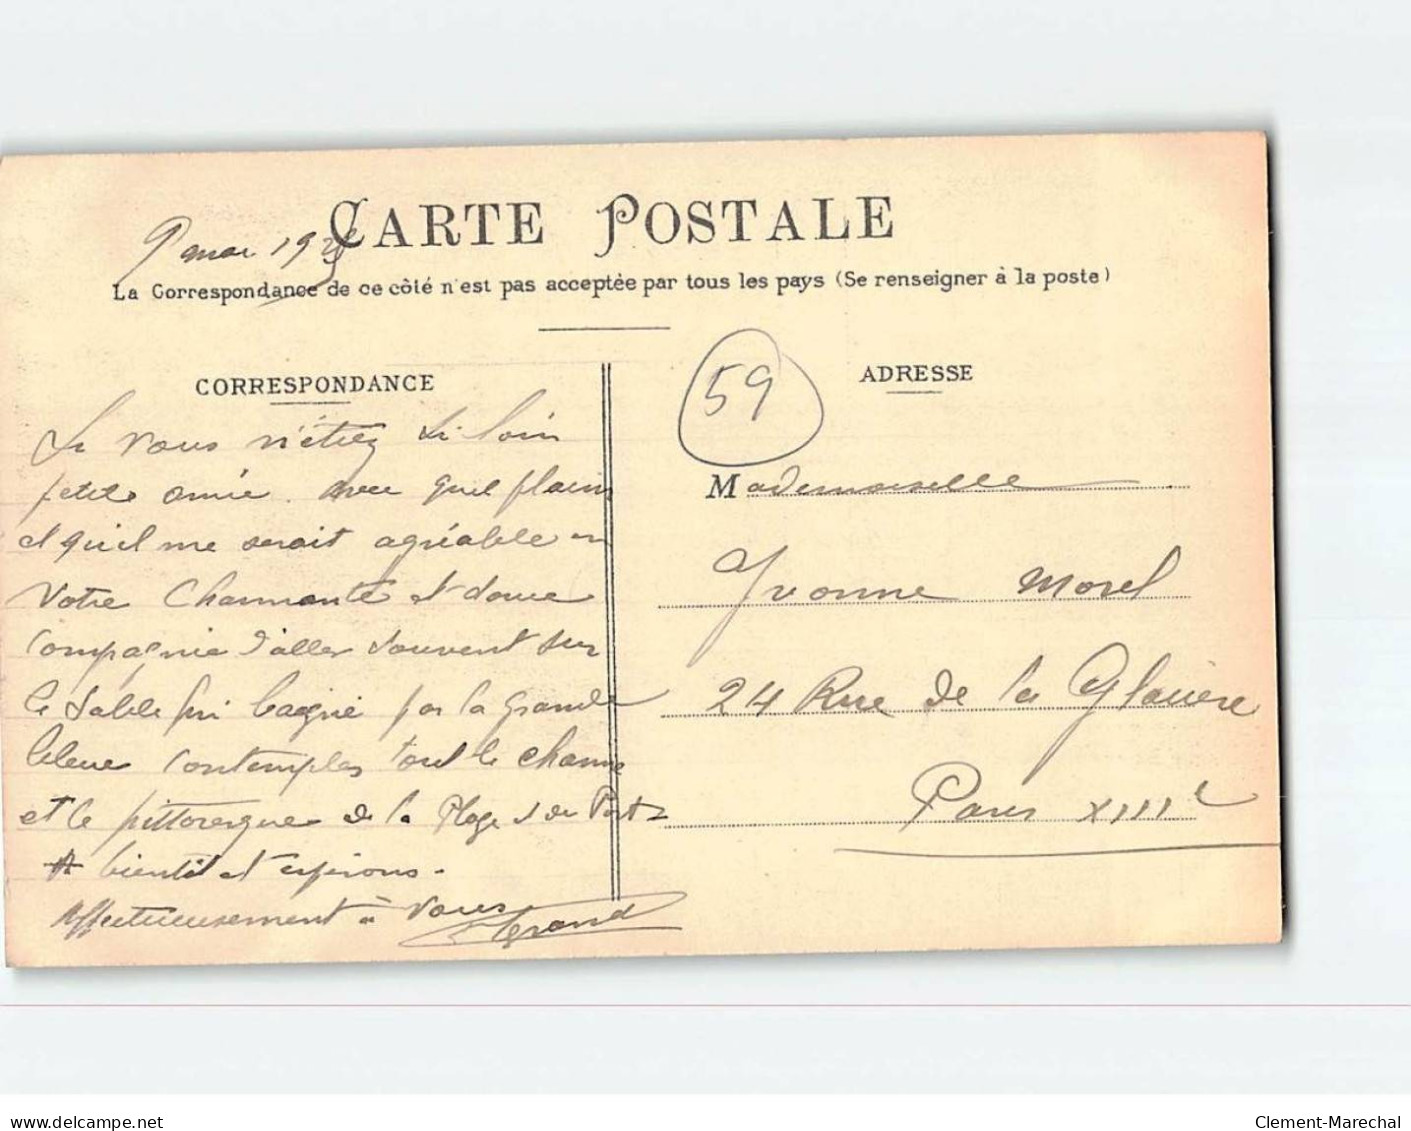 CARTE POSTALE
9 mai 192
La Correspondance de ce côté n'est pas acceptée par tous les pays (Se renseigner à la poste)
CORRESPONDANCE
Si vous n'étiez si loin
petite amie avec quel plaisir
et qu'il me serait agréable en
votre charmante et douce
compagnie d'aller souvent sur
le sable fin baigné par la grande
bleue contempler tout le charme
et le pittoresque de la Plage et du Port
A bientôt et espérons.
Affectueusement à vous
59
ADRESSE
Mademoiselle
Yvonne Morel
24 Rue de la Glacière
Paris XIIIe
delcampe.net
Clement-Marechal